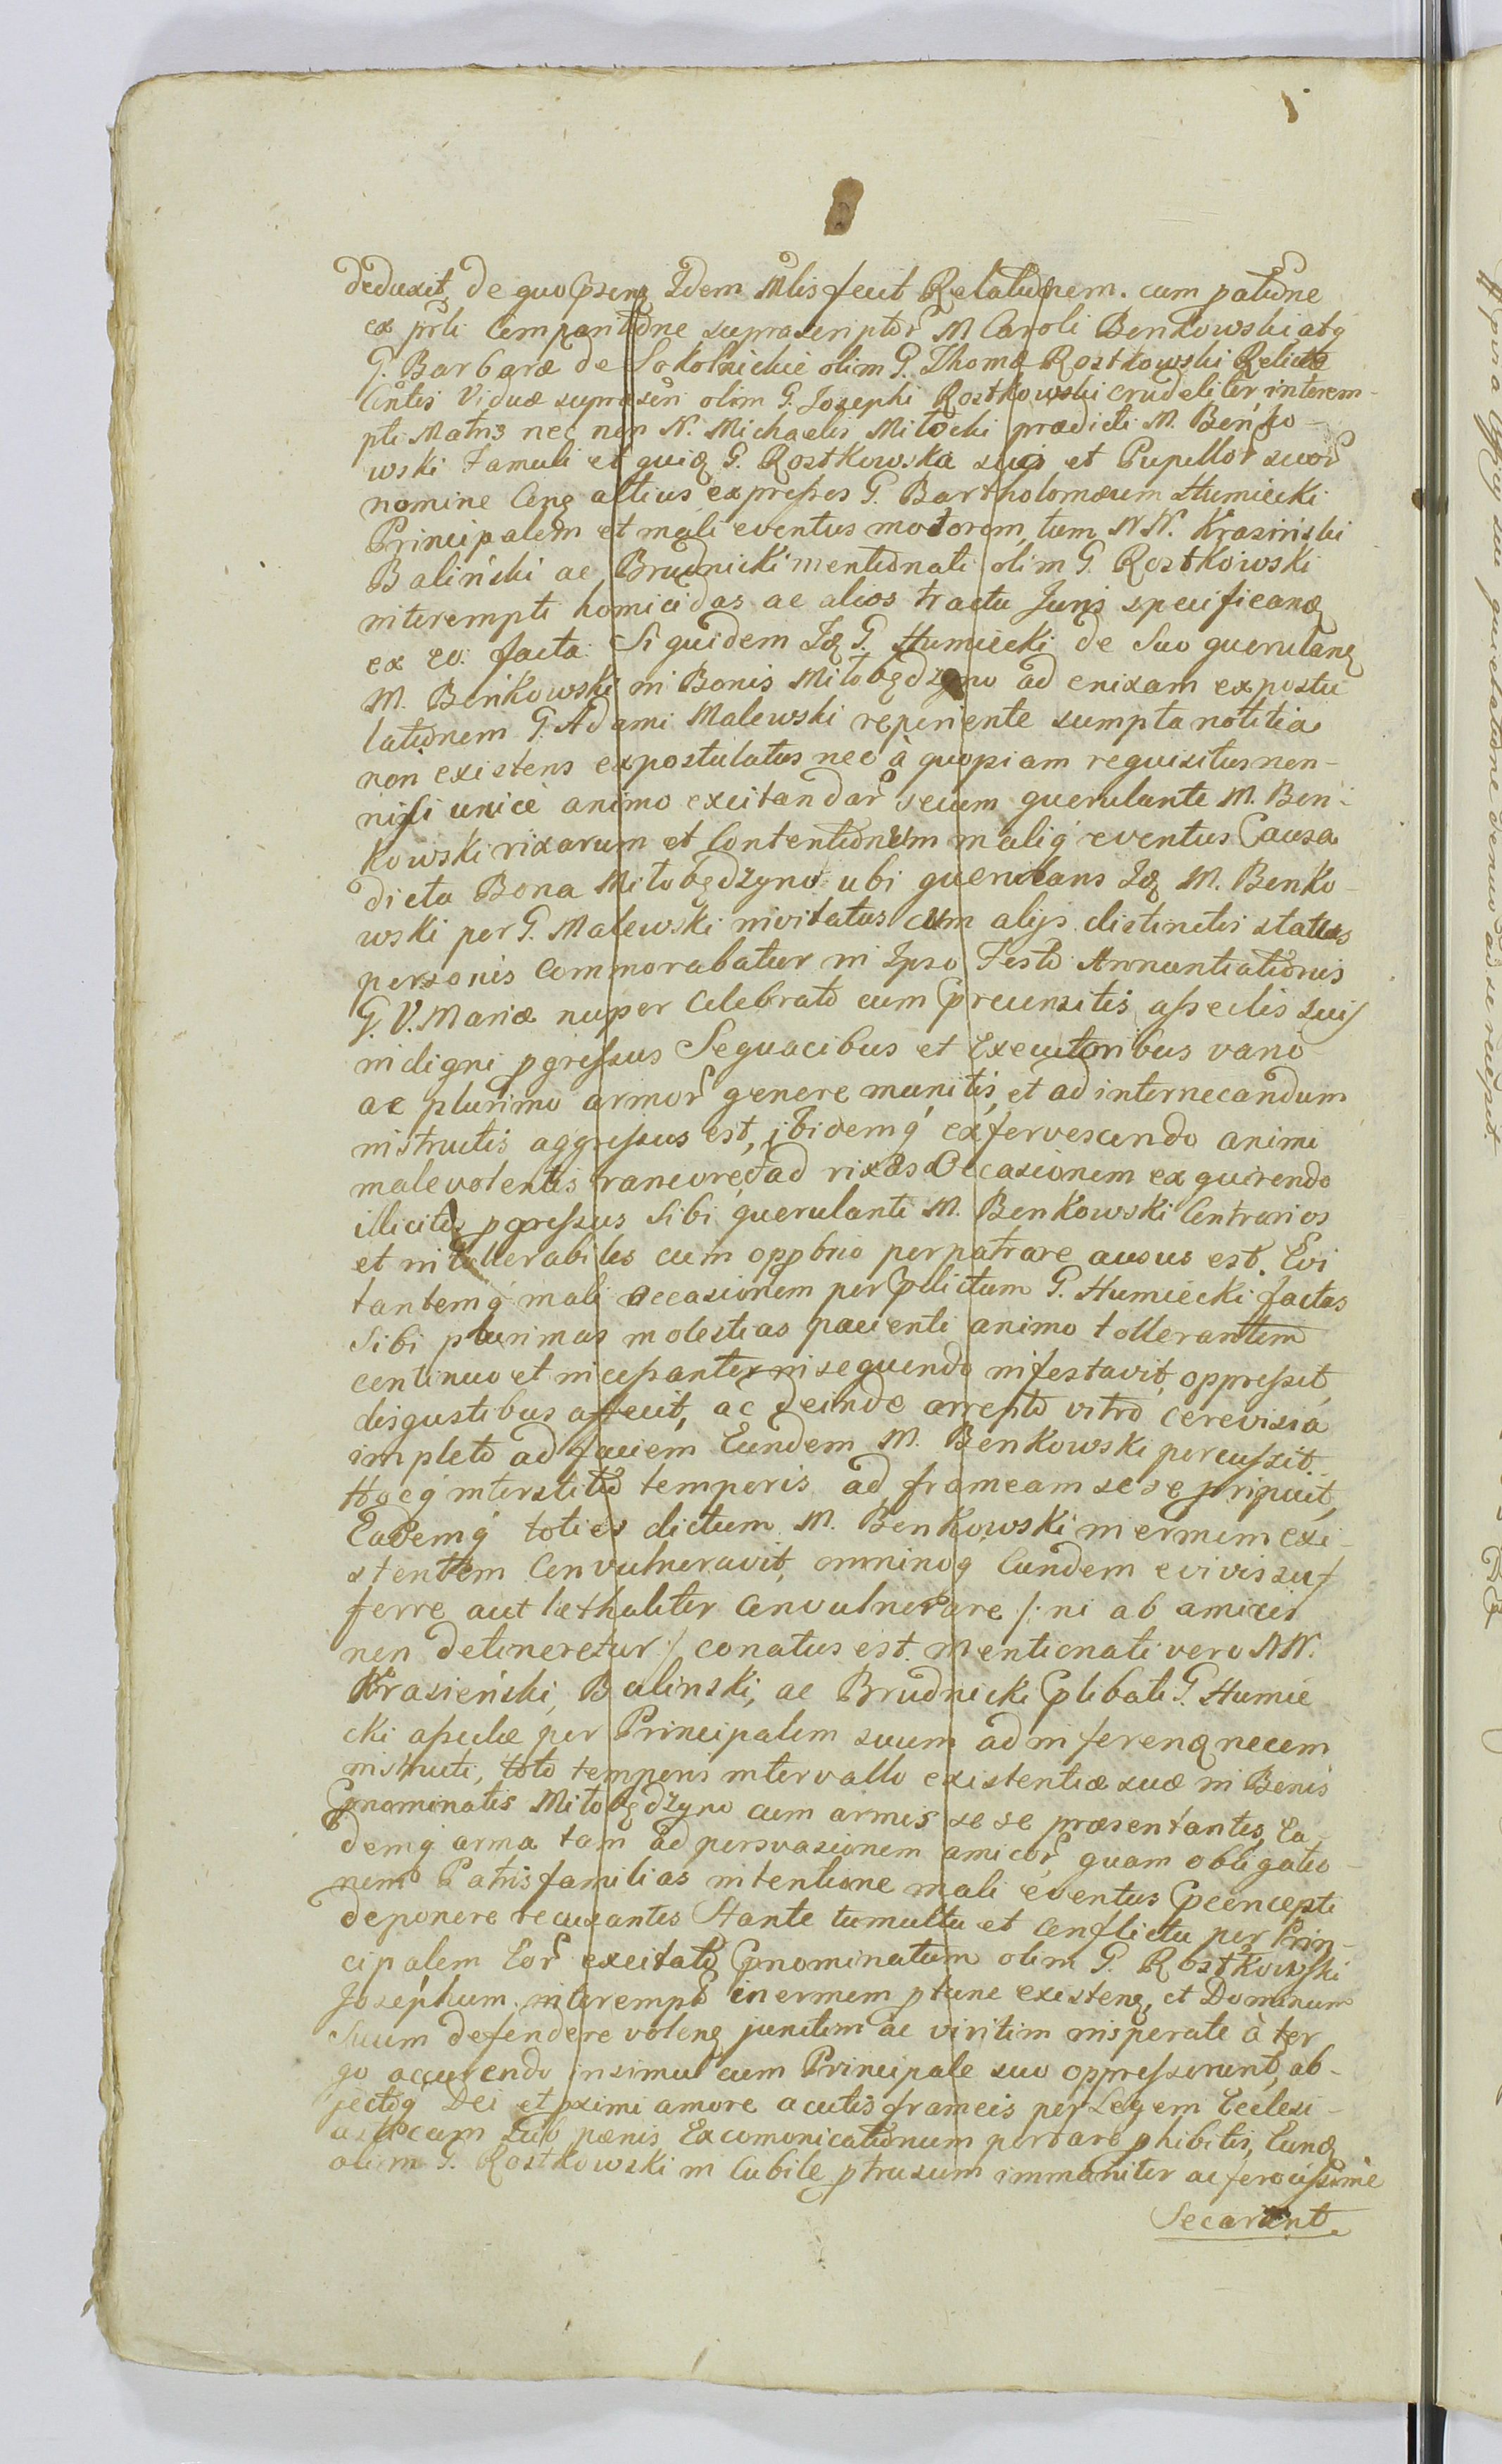 deduxit, de quo Psenq Idem Mlis fecit Relatiönem. cum patiöne
ex prli Comparitiöne suprascriptor M Caroli Benkowski atq
G. Barbaræ de Sokolnickie olim G. Thomæ Rostkowski Relictæ
Cöntis Viduæ suprascri olim G. Josephi Rostkowski crudeliter interem-
pti Matris nec non N. Michaelis Miłocki prædicti M. Beńko-
wski Famuli et quiq G. Rostkowska suo et Pupillor suor
nomine Ceng altius expreſsos G. Bartholomæum Humiecki
Principalem et mali eventus motorem, tum NN. Krasiński
Baliński ac Brudnicki mentiönati olim G. Rostkowski
interempti homicidas ac alios tractu Juris specificanq
ex eo. facta. Siquidem Iq G. Humiecki de Suo querulanq
M. Beńkowski in Bonis Miłobędzyno ad enixam expostu
latiönem G. Adami Malewski reperiente sumpta notitia
non existens expostulatus nec à quopiam requisitus non-
niſi unicè animo excitandar secum querulante M. Ben-
kowski rixarum et Contentiönum maliq eventus Causa
dicta Bona Miłobędzyno ubi querulans Iq M. Benko-
wski per G. Malewski invitatus cum alijs distinctis status
personis commorabatur in Ipso Festo Annuntiatiönis
G. V. Mariæ nuper Celebrato cum Precensitis aſseclis suis
indigni pgreſsus Sequacibus et Executoribus vario
ac plurimo armor genere munitis, et ad internecandum
instructis aggreſsus est, ibidemq exfervescendo animi
malevolentis rancore, ad rixas Occasionem exquirendo
illicitos pgreſsus Sibi querulanti M. Benkowski Contrarios
et intollerabiles cum oppbrio perpatrare ausus est. Evi
tantemq mali occasionem per Pdictum G. Humiecki factas
Sibi plurimas molestias pacienti animo tollerantem
continuo et inceſsanter insequendo infestavit, oppreſsit,
disgustibus affecit, ac deinde arrepto vitro cerevisia
impleto ad faciem Eundem M. Benkowski percuſsit.
Hocq interstitio temporis ad frameam sese pripuit,
Eademq toties dictum M. Benkowski inermem exi-
stentem Convulneravit, omninoq Eundem e vivis suf
ferre aut læthaliter convulnerare /: ni ab amicis
non detineretur :/ conatus est. Mentionati vero NN.
Krasieński, Balinski, ac Brudnicki Plibati G. Humie
cki aſseclæ per Principalem suum ad inferenq necem
instructi, toto temporis intervallo existentiæ suæ in Bonis
Pnominatis Miłobędzyno cum armis se se præsentantes, Ea
demq arma tam ad persvasionem amicor, quam obligatio-
nem Patrisfamilias intentione mali eventus Pconcepti
deponere recusantes Stante tumultu et conflictu per Prin-
cipalem Eor excitato Pnominatum olim G. Rostkowski
Josephum interempt inermem plane existenq, et Dominum
Suum defendere volenq junctim ac viritim insperate à ter
go accurendo insimul cum Principale suo oppreſserunt, ab-
jectoq Dei et pximi amore acutis frameis per Legem Ecclesi-
asticam sub pænis Excomonicatiönum portare phibitis, Eunq
olim G. Rostkowski in Cubile ptrusum immaniter ac ferociſsime
Secarunt